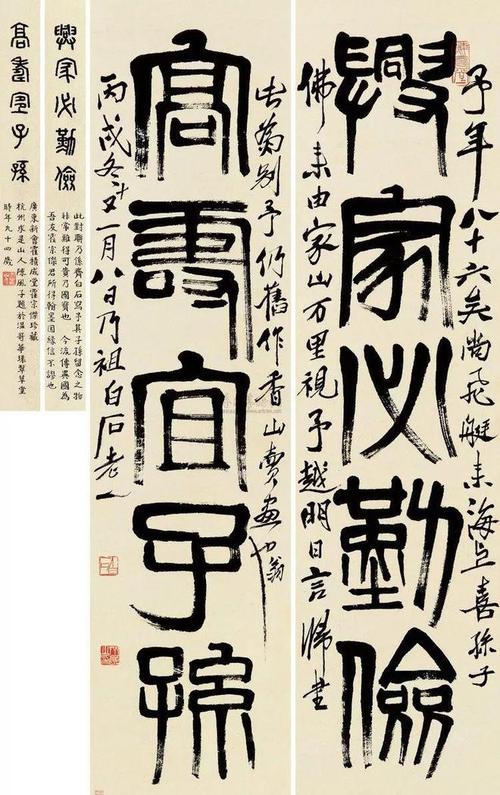 予年八十六矣尚飛艇来海上喜孫子
興家必勤儉
佛来由家山万里視予越明日言歸書
此為别予仍舊作香山賣画翁也
高壽宜子孫
丙戌冬十又一月八日乃祖白石老人
興家必勤儉
此對聯乃係齊白石寫予其子孫留念之物
非常難得可貴乃國寶也 今流傳異國為
吾友霍宗傑君所得翰墨因緣信不謬也
高壽宜子孫
廣東新會霍積成堂霍宗傑珍藏
杭州求是山人陳風子題於温哥華琢翠草堂
時年九十四歲